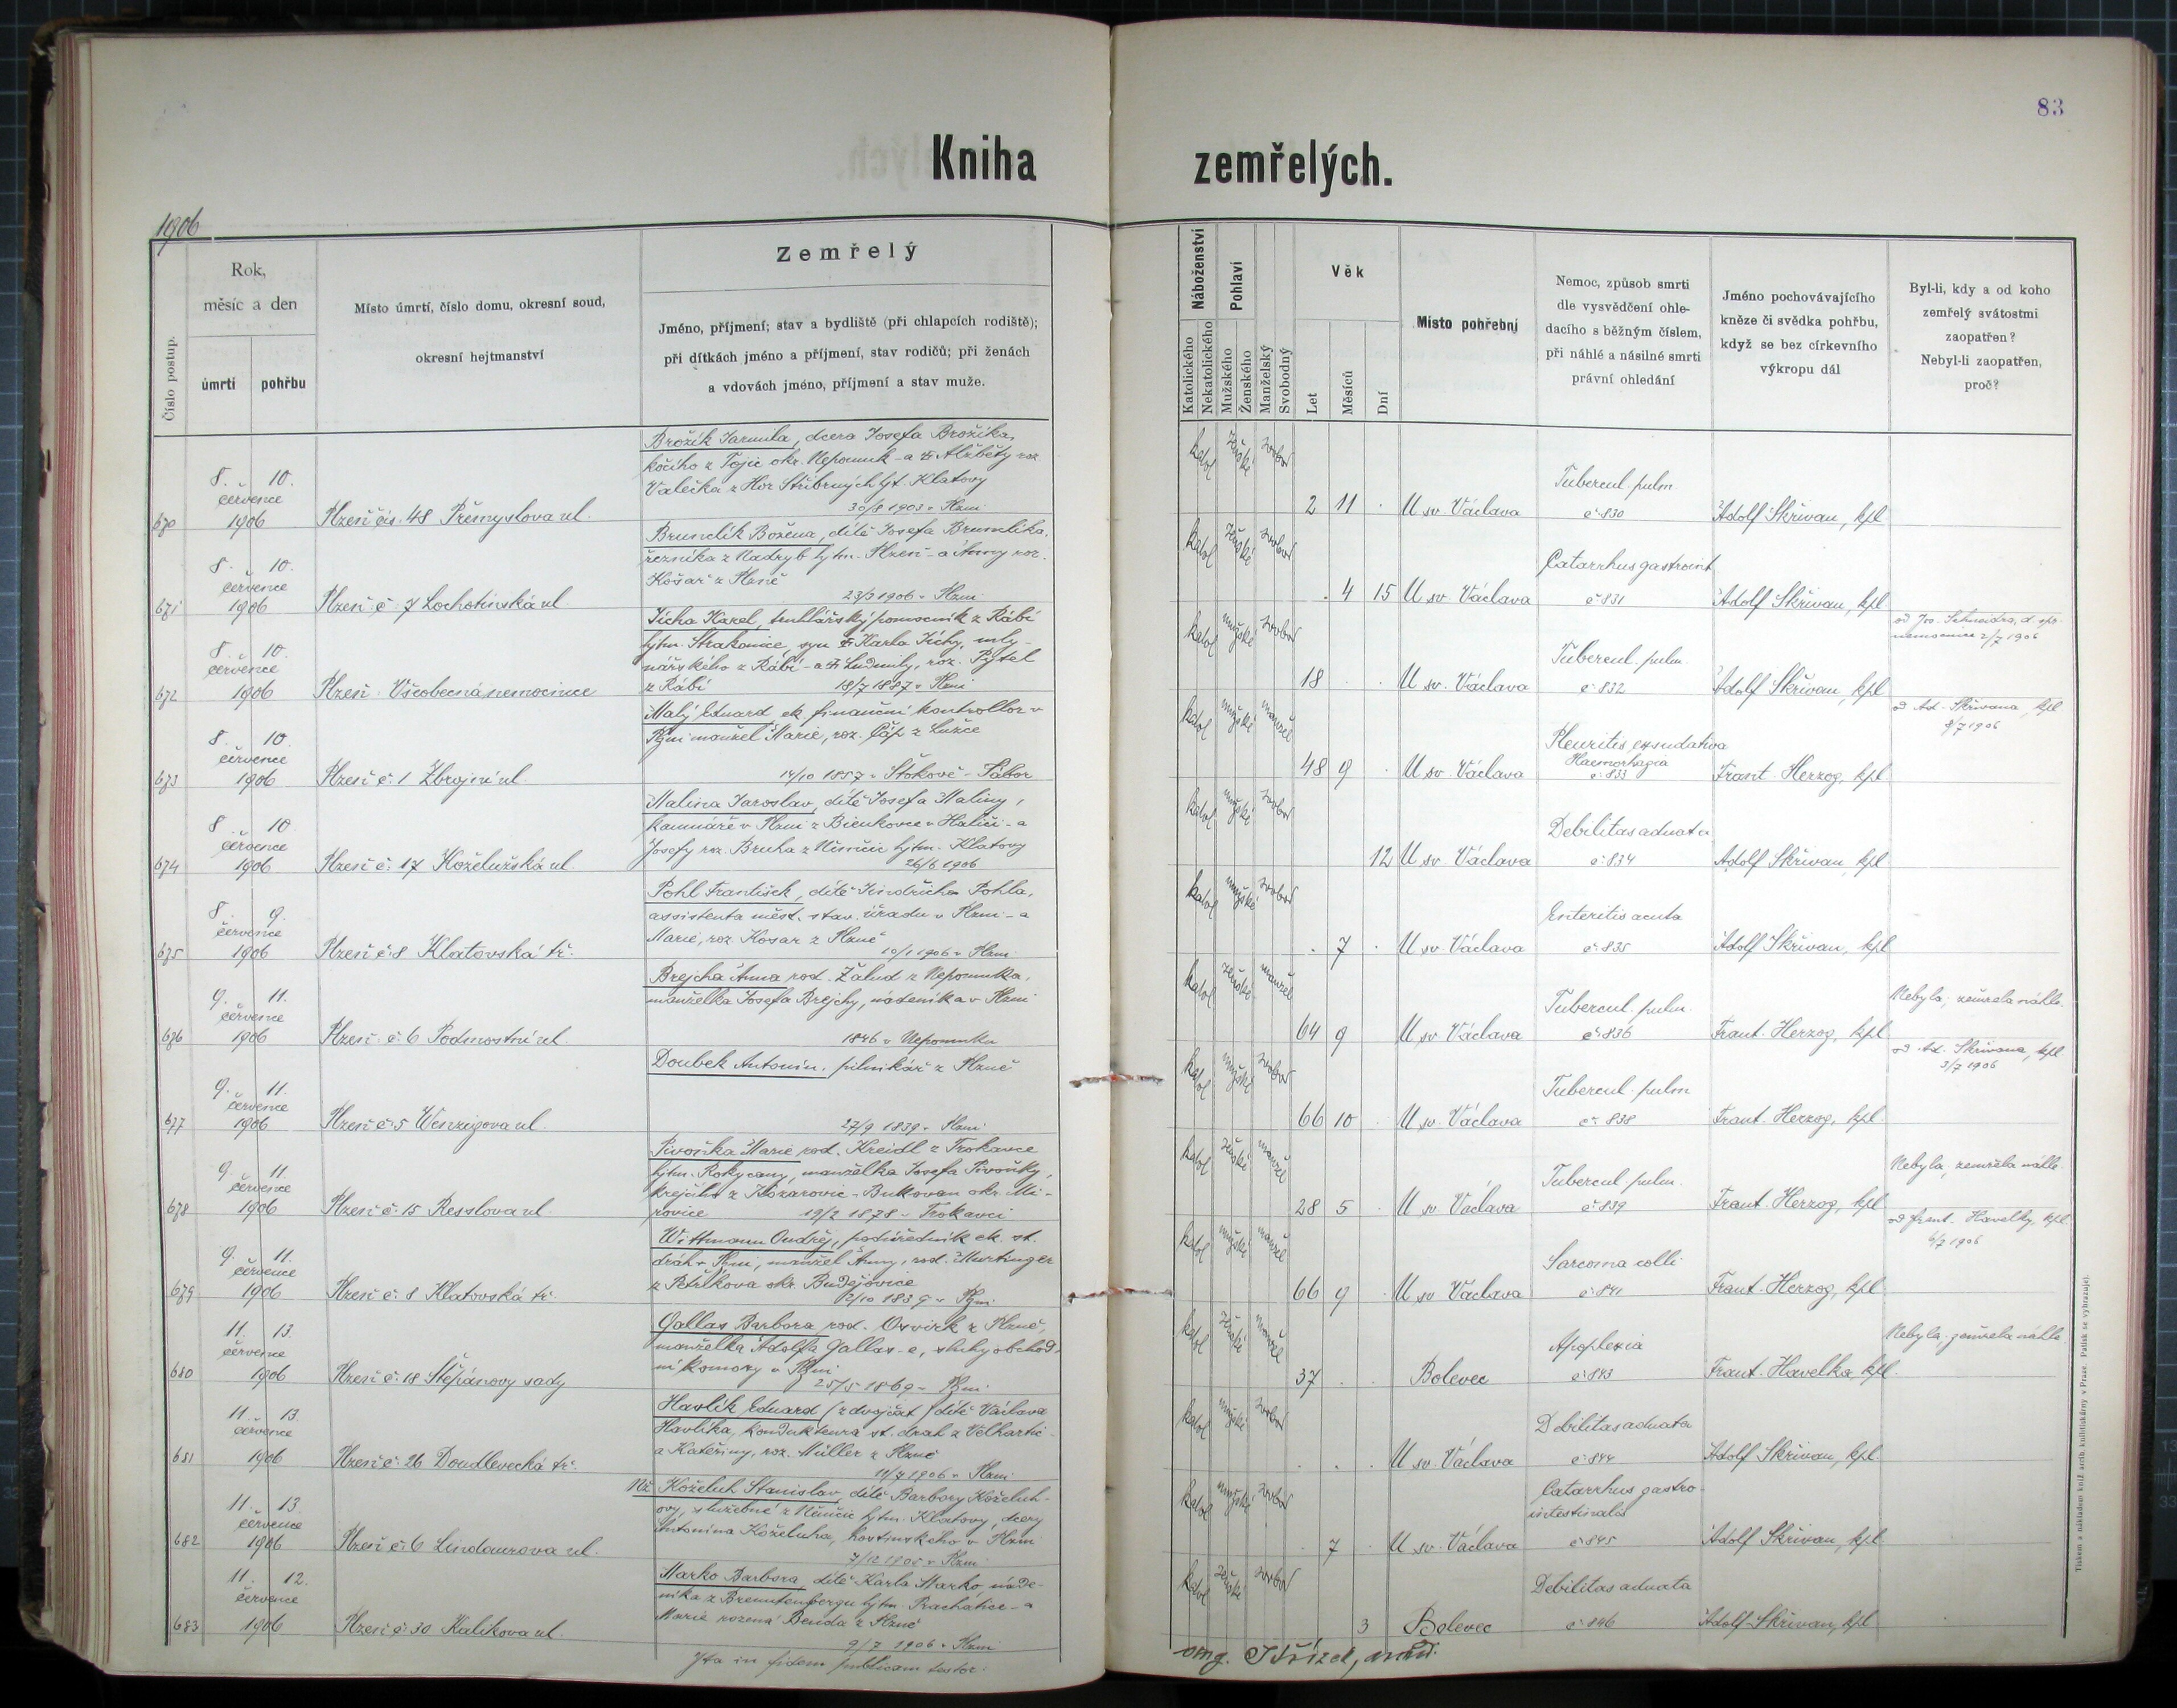 83
Kniha zemřelých.
1906
Číslo postup.
Rok,
měsíc a den
úmrtí
pohřbu
Místo úmrtí, číslo domu, okresní soud,
okresní hejtmanství
Zemřelý
Jméno, příjmení; stav a bydliště (při chlapcích rodiště);
při dítkách jméno a příjmení, stav rodičů; při ženách
a vdovách jméno, příjmení a stav muže.
Náboženství
Katolického
Nekatolického
Pohlaví
Mužského
Ženského
Manželský
Svobodný
Věk
Let
Měsíců
Dní
Místo pohřební
Nemoc, způsob smrti
dle vysvědčení ohle-
dacího s běžným číslem,
při náhlé a násilné smrti
právní ohledání
Jméno pochovávajícího
kněze či svědka pohřbu,
když se bez církevního
výkropu dál
Byl-li, kdy a od koho
zemřelý svátostmi
zaopatřen?
Nebyl-li zaopatřen,
proč?
670
8. 10.
července
1906
Plzeň čís. 48 Přemyslova ul.
Brožík Jarmila, dcera Josefa Brožíka,
kočího z Tojic okr. Nepomuk - a Alžběty roz
Valečka z Hor Stříbrných hjt. Klatovy
30/8 1903 v Plzni
katol ženské svobod
2 11 .
U sv. Václava
Tubercul. pulm
č. 830
Adolf Skřivan, kpl
671
8. 10.
července
1906
Plzeň č. 7 Lochotínská ul.
Brumlík Božena, dítě Josefa Brumlíka,
řezníka z Nadryb hjtm. Plzeň - a Anny roz.
Košař z Plzně
23/3 1906 v Plzni
katol ženské svobod
. 4 15
U sv. Václava
Catarrhus gastroint
č. 831
Adolf Skřivan, kpl
672
8. 10.
července
1906
Plzeň Všeobecná nemocnice
Jícha Karel, truhlářský pomocník z Rábí
hjtm. Strakonice, syn Karla Jíchy, mly-
nářského z Rábí - a Ludmily, roz. Pytel
z Rábí 18/7 1887 v Plzni
katol mužské svobod
18 . .
U sv. Václava
Tubercul. pulm.
č. 832
Adolf Skřivan, kpl
od Jos. Schneidra, d. spr.
nemocnice 2/7 1906
673
8. 10.
července
1906
Plzeň č. 1 Zbrojní ul.
Malý Eduard ck finanční kontrollor v
Plzni manžel Marie, roz. Čáp z Lužce
14/10 1857 v Štokově - Tábor
katol mužské manžel
48 9 .
U sv. Václava
Pleuritis exsudativa
Haemorhagia
č. 833
Frant. Herzog, kpl
od Ad. Skřivana, kpl
8/7 1906
674
8. 10.
července
1906
Plzeň č. 17 Koželužská ul.
Malina Jaroslav, dítě Josefa Maliny,
kamnáře v Plzni z Bienkovce v Haliči - a
Josefy roz. Bruha z Němčic hjtm. Klatovy
26/6 1906
katol mužské svobod
12
U sv. Václava
Debilitas adnata
č. 834
Adolf Skřivan, kpl
675
8. 9.
července
1906
Plzeň č. 8 Klatovská tř.
Pohl František, dítě Jindřicha Pohla,
assistenta měst. stav. úřadu v Plzni - a
Marie, roz Kosar z Plzně
10/1 1906 v Plzni
katol mužské svobod
. 7 .
U sv. Václava
Enteritis acuta
č. 835
Adolf Skřivan, kpl
676
9. 11.
července
1906
Plzeň č. 6 Podmostní ul.
Brejcha Anna rod. Žalud z Nepomuka,
manželka Josefa Brejchy, nádeníka v Plzni
1846 v Nepomuku
katol ženské manžel
64 9
U sv. Václava
Tubercul. pulm.
č. 836
Frant. Herzog, kpl
Nebyla, zemřela náhle.
677
9. 11.
července
1906
Plzeň č. 5 Wenzigova ul.
Doubek Antonín, pilnikář z Plzně
27/9 1839 v Plzni
katol mužské svobod
66 10 .
U sv. Václava
Tubercul. pulm
č. 838
Frant. Herzog, kpl.
od Ad. Skřivana, kpl
3/7 1906
678
9. 11.
července
1906
Plzeň č. 15 Resslova ul.
Pivoňka Marie rod. Kreidl z Trokavce
hjtm. Rokycany, manželka Josefa Pivoňky,
krejčího z Kozarovic - Bukovan okr. Mi-
rovice 19/2 1878 v Trokavci
katol ženské manžel
28 5 .
U sv. Václava
Tubercul. pulm.
č. 839
Frant. Herzog, kpl
Nebyla, zemřela náhle.
679
9. 11.
července
1906
Plzeň č. 8 Klatovská tř.
Wittmann Ondřej, podúředník ck. st.
dráh v Plzni, manžel Anny, rod. Murtinger
z Petříkova okr. Budějovice
12/10 1839 v Plzni
katol mužské manžel
66 9 .
U sv Václava
Sarcoma colli
č. 841
Frant. Herzog, kpl
od Frant. Havelky, kpl.
6/7 1906
680
11. 13.
července
1906
Plzeň č. 18 Štěpánovy sady
Gallas Barbora rod. Osvirk z Plzně,
manželka Adolfa Gallas-e, sluhy obchod.
ní komory v Plzni
25/5 1869 v Plzni
katol ženské manžel
37 . .
Bolevec
Apoplexia
č. 843
Frant. Havelka kpl.
Nebyla, zemřela náhle
681
11. 13.
července
1906
Plzeň č. 26 Doudlevecká tř.
Havlík Eduard (z dvojčat) dítě Václava
Havlíka, konduktéra st. drah z Velhartic -
a Kateřiny, roz. Müller z Plzně
11/7 1906 v Plzni
katol mužské svobod
. . .
U sv. Václava
Debilitas adnata
č. 844
Adolf Skřivan, kpl.
682
11. 13.
července
1906
Plzeň č. 6 Lindaurova ul.
Nž Koželuh Stanislav, dítě Barbory Koželuh-
ovy, služebné z Němčic hjtm. Klatovy, dcery
Antonína Koželuha, hostinského v Plzni
7/12 1905 v Plzni
katol mužské svobod
. 7 .
U sv. Václava
Catarrhus gastro-
intestinalis
č. 845
Adolf Skřivan, kpl
683
11. 12.
července
1906
Plzeň č. 30 Kalikova ul.
Marko Barbora, dítě Karla Marko, náde-
níka z Brenntenbergu hjtm. Prachatice - a
Marie rozená Benda z Plzně
9/7 1906 v Plzni
katol ženské svobod
3
Bolevec
Debilitas adnata
č. 846
Adolf Skřivan, kpl
Ita in fidem publicam testor: